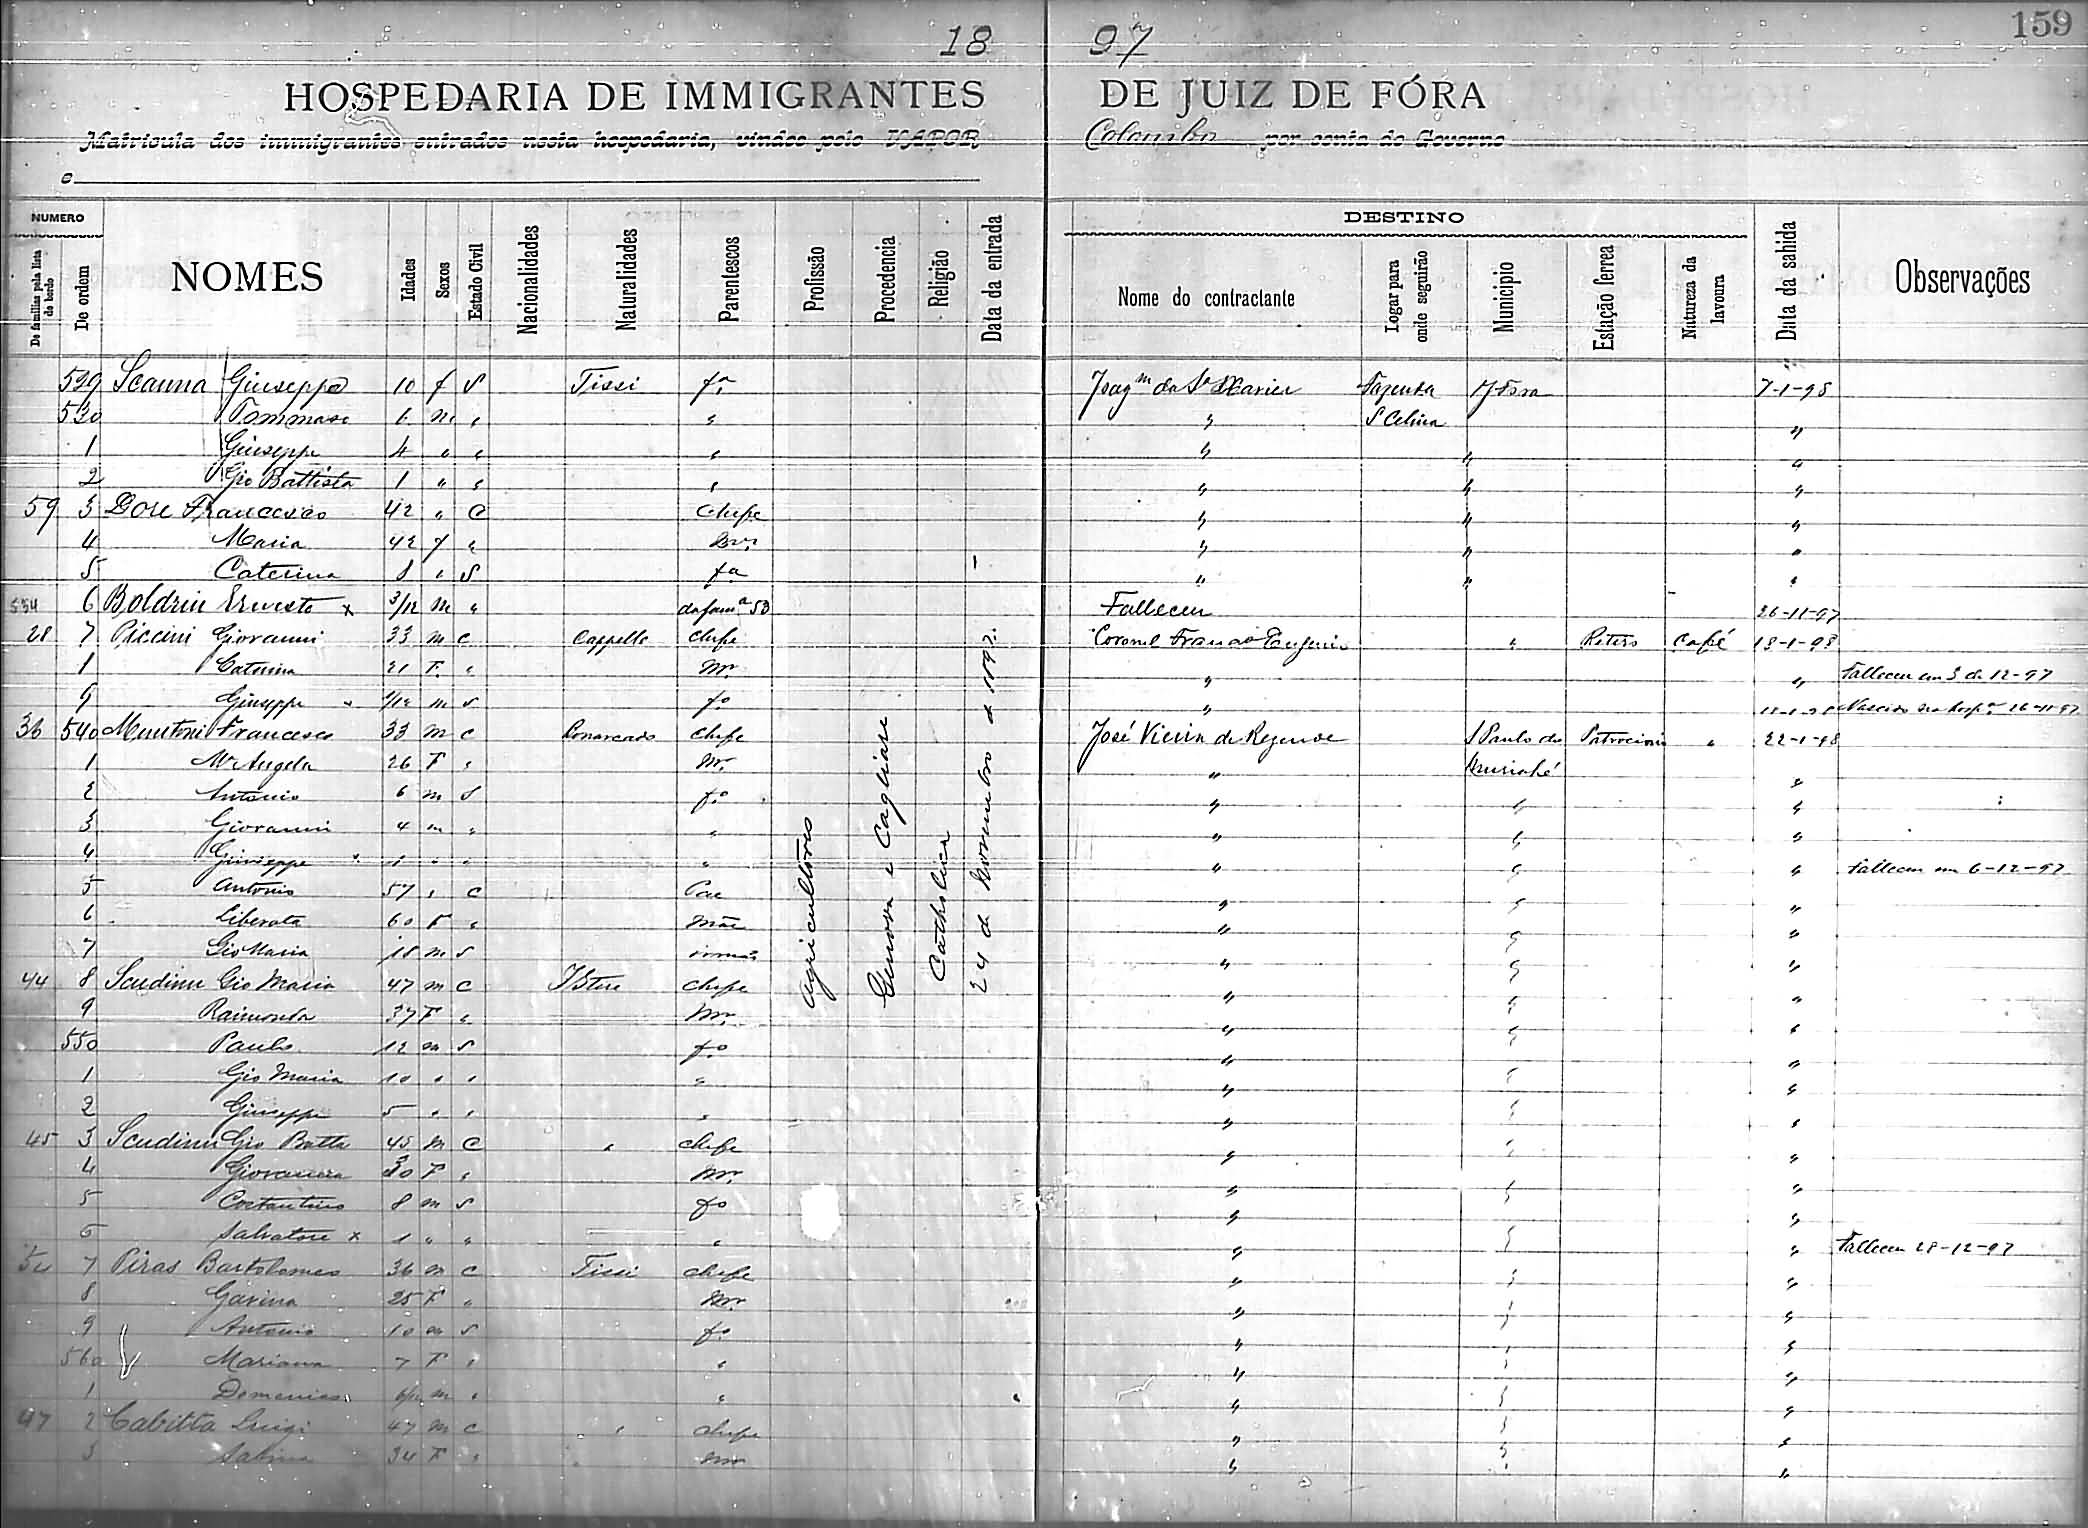 159
18 97
HOSPEDARIA DE IMMIGRANTES DE JUIZ DE FÓRA
Matricula dos immigrantes entrados nesta hospedaria, vindos pelo VAPOR Colombo por conta do Governo
e
NUMERO DESTINO
De familias pela lista de bordo De ordem NOMES Idades Sexos Estado Civil Nacionalidades Naturalidades Parentescos Profissão Procedencia Religião Data da entrada Nome do contractante Logar para onde seguirão Municipio Estação ferrea Natureza da lavoura Data da sahida Observações
Agricultores Genova e Cagliare Catholica 24 de Novembro de 1897
529 Scanna Giuseppa 10 f S Tissi fa Joaqm da Sa Xavier Fazenda J Fora 7-1-98
530 Tommaso 6 m " " " S Celina "
1 Giuseppe 4 " " " " " "
2 Gio Battista 1 " " " " " "
59 3 Dore Francesco 42 " C Chefe " " "
4 Maria 42 f " mr " " "
5 Caterina 8 " S fa " " "
534 6 Boldrin Ernesto x 3/12 m " da fama 53 Falleceu 26-11-97
28 7 Piccini Giovanni 33 m C Cappella Chefe Coronel Franco Eugenio " Retiro Café 18-1-98
1 Caterina 21 F " Mr " " Falleceu em 3 de 12-97
9 Giuseppe 1/12 m S fo " Nascido na hospa 16-11-97
36 540 Muntoni Francesco 33 m C Chefe José Vieira de Rezende S Paulo do Patrocinio " 22-1-98
1 Ma Angela 26 F " Mr " Muriahé "
2 Antonio 6 m S fo " " "
3 Giovanni 4 m " " " " "
4 Giuseppe 1 " " " " " " Falleceu em 6-12-97
5 Antonio 57 " C Pae " " "
6 Liberata 60 F " Mãe " " "
7 Gio Maria 18 m S irmão " " "
44 8 Scudinu Gio Maria 47 m C Chefe " " "
9 Raimonda 37 F " Mr " " "
550 Paulo 12 m S fo " " "
1 Gio Maria 10 " " " " " "
2 Giuseppe 5 " " " " " "
45 3 Scudinu Gio Batta 45 m C " Chefe " " "
4 Giovanna 30 F " Mr " " "
5 Costantino 8 m S fo " " "
6 Salvatore x 1 " " " " " " Falleceu 28-12-97
7 Piras Bartolomeo 36 m C Tissi Chefe " " "
8 Gavina 25 F " Mr " " "
9 Antonio 10 m S fo " " "
560 Mariana 7 F " " " " "
1 Domenico 6/12 m " " " " "
47 2 Cabitta Luigi 47 m C " Chefe " " "
3 Sabina 34 F " mr " " "